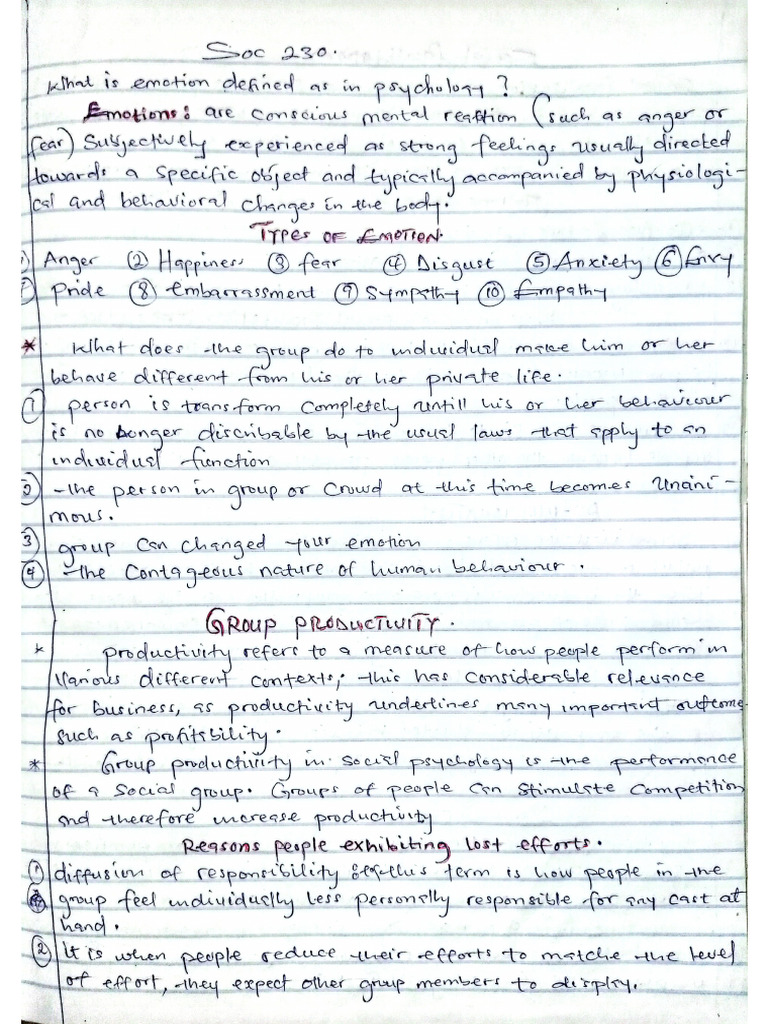 Soc 230.
What is emotion defined as in psychology?
Emotions: are conscious mental reaction (such as anger or
fear) Subjectively experienced as strong feelings usually directed
towards a specific object and typically accompanied by physiologi-
cal and behavioral changes in the body.
TYPES OF EMOTION.
① Anger ② Happiness ③ fear ④ Disgust ⑤ Anxiety ⑥ Envy
⑦ Pride ⑧ Embarrassment ⑨ Sympathy ⑩ Empathy
* What does the group do to individual make him or her
behave different from his or her private life.
① person is transform completely untill his or her behaviour
is no longer discribable by the usual laws that apply to an
individual function
② the person in group or crowd at this time becomes unani-
mous.
③ group can changed your emotion
④ the contageous nature of human behaviour.
GROUP PRODUCTIVITY.
* productivity refers to a measure of how people perform in
various different contexts; this has considerable relevance
for business, as productivity underlines many important outcome
such as profitability.
* Group productivity in social psychology is the performance
of a social group. Groups of people can stimulate competition
and therefore increase productivity
Reasons people exhibiting lost efforts.
① diffusion of responsibility: this term is how people in the
group feel individually less personally responsible for any cast at
hand.
② It is when people reduce their efforts to matche the level
of effort, they expect other group members to display.